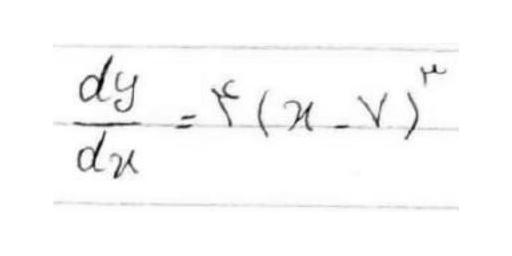 dy/dx = ۴(x - ۷)^۳